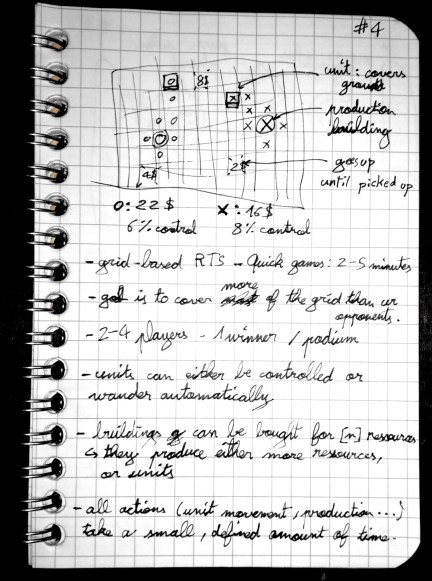 #4
8$
unit: covers
ground
production
building
goes up
until picked up
4$
2$
O: 22 $
X: 16 $
6% control
8% control
- grid-based RTS - Quick games: 2-5 minutes
- goal is to cover more of the grid than ur
opponents.
- 2-4 players - 1 winner / podium
- units can either be controlled or
wander automatically
- buildings can be bought for [n] ressources
↳ they produce either more ressources,
or units
- all actions (unit movement, production...)
take a small, defined amount of time.